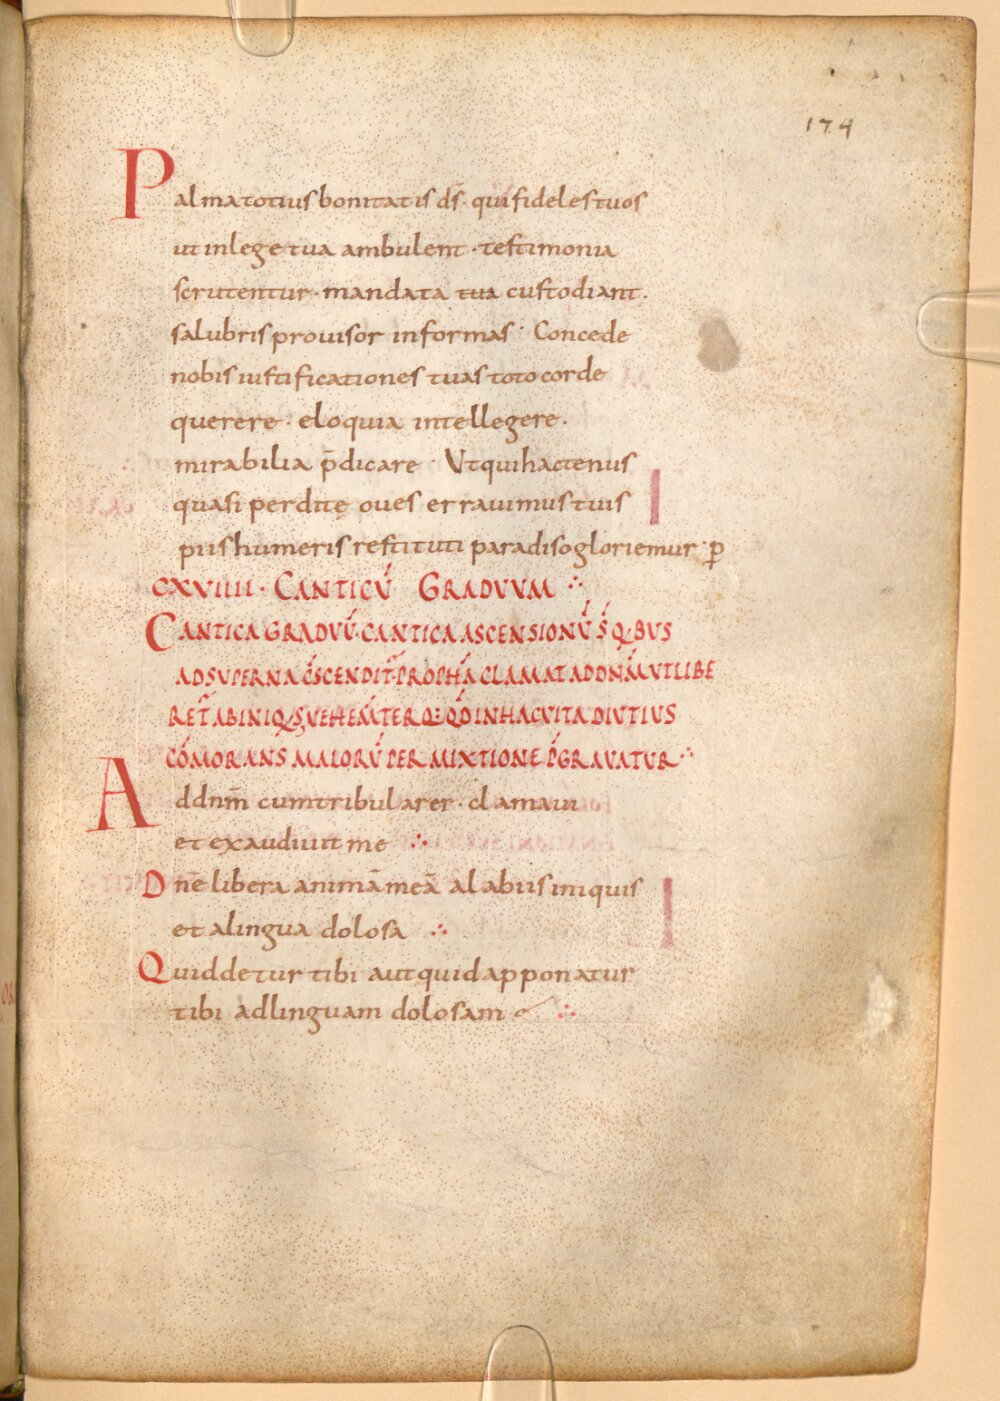 174
Palma totius bonitatis ds̄ · qui fideles tuos
ut in lege tua ambulent · testimonia
scrutentur · mandata tua custodiant ·
salubris prouisor informas · Concede
nobis iustificationes tuas toto corde
querere · eloquia intellegere ·
mirabilia p̄dicare · Ut qui hactenus
quasi perditę oues errauimus tuis
piis humeris restituti paradiso gloriemur · p
CXVIIII · CANTICŪ GRADUUM
CANTICA GRADUŪ · CANTICA ASCENSIONŪ S̄ QUIBUS
AD SUPERNA CLAMAT AD DN̄M UT LIBE
RET
COMORANS MALORŪ PERMIXTIONE P̄GRAVATUR
Ad dnm̄ cum tribularer · clamaui
et exaudiuit me
Dnē libera animā meā a labiis iniquis
et a lingua dolosa
Quid detur tibi aut quid apponatur
tibi ad linguam dolosam